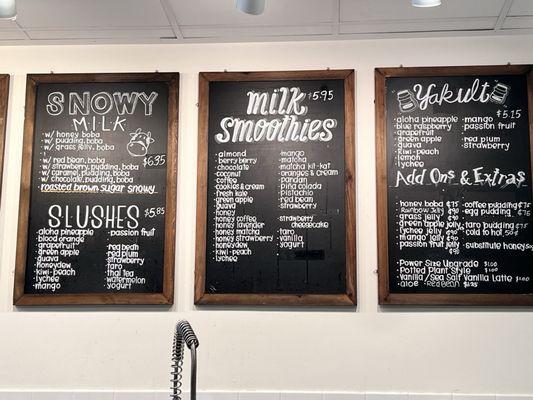 SNOWY
MILK
w/ honey boba
w/ pudding, boba
w/ grass jelly, boba
w/ red bean, boba
w/ strawberry, pudding, boba
w/ caramel, pudding, boba
w/ chocolate, pudding, boba
$6.35
roasted brown sugar snowy
SLUSHES $5.85
- aloha pineapple
- blood orange
- grapefruit
- green apple
- guava
- honeydew
- kiwi-peach
- lychee
- mango
- passion fruit
- red bean
- red plum
- strawberry
- taro
- thai tea
- watermelon
- yogurt
Milk $5.95
Smoothies
- almond
- berry berry
- chocolate
- coconut
- coffee
- cookies & cream
- fresh kale
- green apple
- guava
- honey
- honey coffee
- honey lavender
- honey matcha
- honey strawberry
- honeydew
- kiwi-peach
- lychee
- mango
- matcha
- matcha kit-kat
- oranges & cream
- pandan
- piña colada
- pistachio
- red bean
- strawberry
- strawberry cheesecake
- taro
- vanilla
- yogurt
Yakult $5.15
- aloha pineapple
- blue raspberry
- grapefruit
- green apple
- guava
- kiwi-peach
- lemon
- lychee
- mango
- passion fruit
- red plum
- strawberry
Add Ons & Extras
- honey boba $75
- Rainbow Jelly $90
- grass jelly $90
- green apple jelly $90
- lychee jelly $90
- mango jelly $90
- passion fruit jelly $90
- coffee pudding $75
- egg pudding $75
- taro pudding $75
- cold to hot 50¢
- substitute honey
- Power Size Upgrade $1.00
- Potted Plant Style $1.00
- Vanilla/Sea Salt Vanilla Latte $1.00
- Aloe - Red Bean $1.25